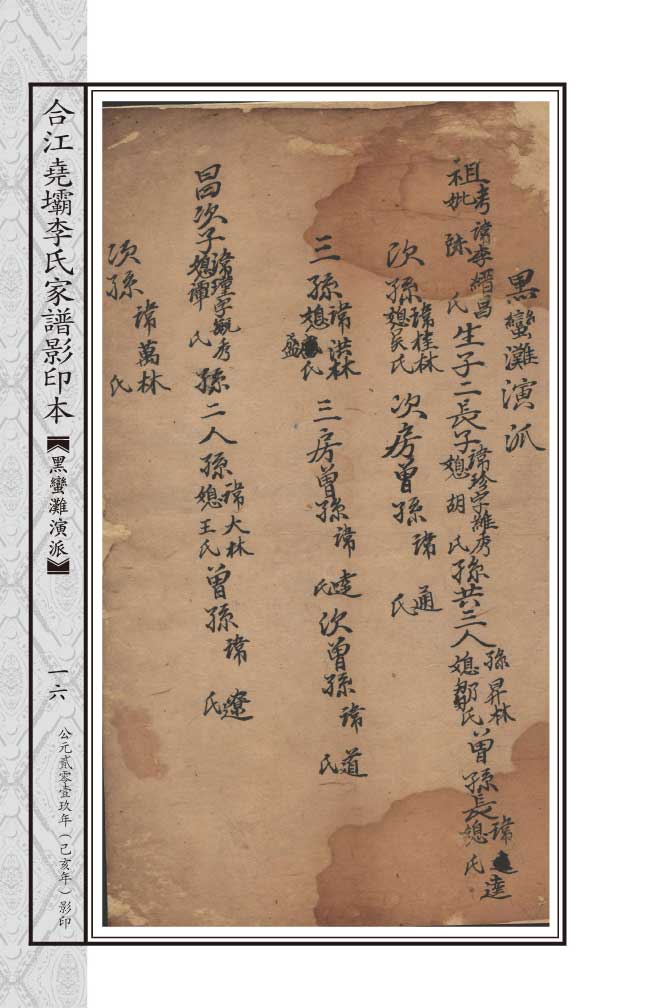 黑蠻灘演派
祖考諱李縉昌
妣 陈 氏 生子二長子諱珍字雅秀
媳 胡 氏 孫共三人孫 昇林
媳鄒氏 曾孫長諱 達
媳 氏
次孫諱桂林
媳吴氏 次房曾孫諱 通
氏
三孫諱洪林
媳 氏 三房曾孫諱 逵
氏 次曾孫諱 道
氏
昌次子諱瓊字觀秀
媳譚 氏 孫二人孫諱大林
媳王氏 曾孫諱 遼
氏
次孫諱萬林
氏
合江堯壩李氏家譜影印本
【黑蠻灘演派】
一六
公元貳零壹玖年（己亥年）影印